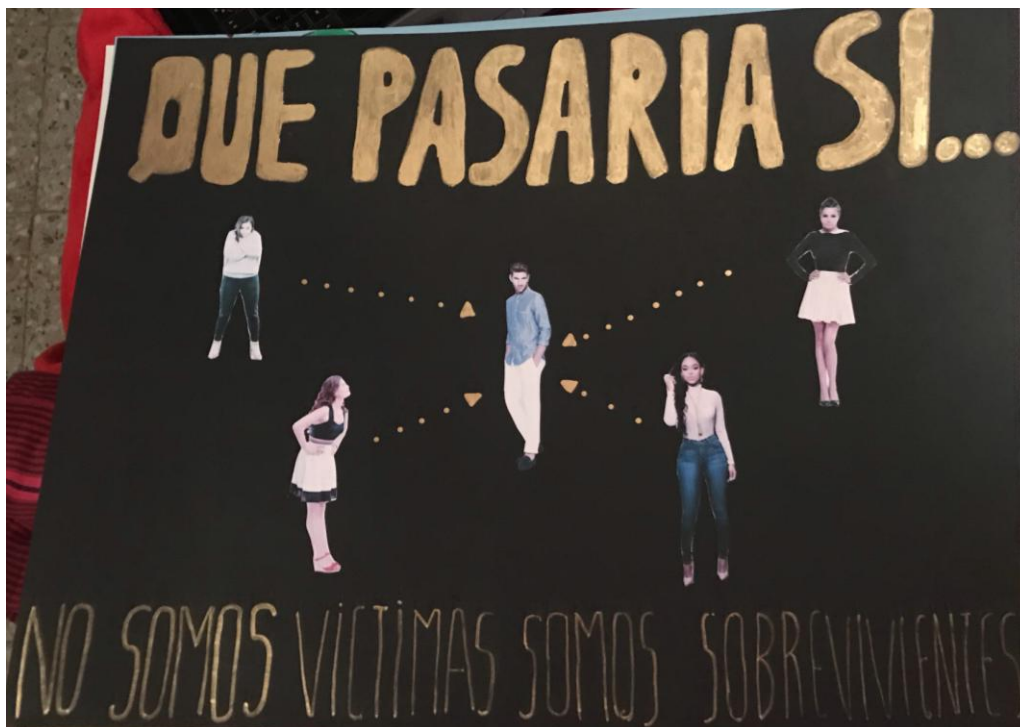 QUE PASARIA SI...
NO SOMOS VíCTiMAS SOMOS SOBREVIVIENTES